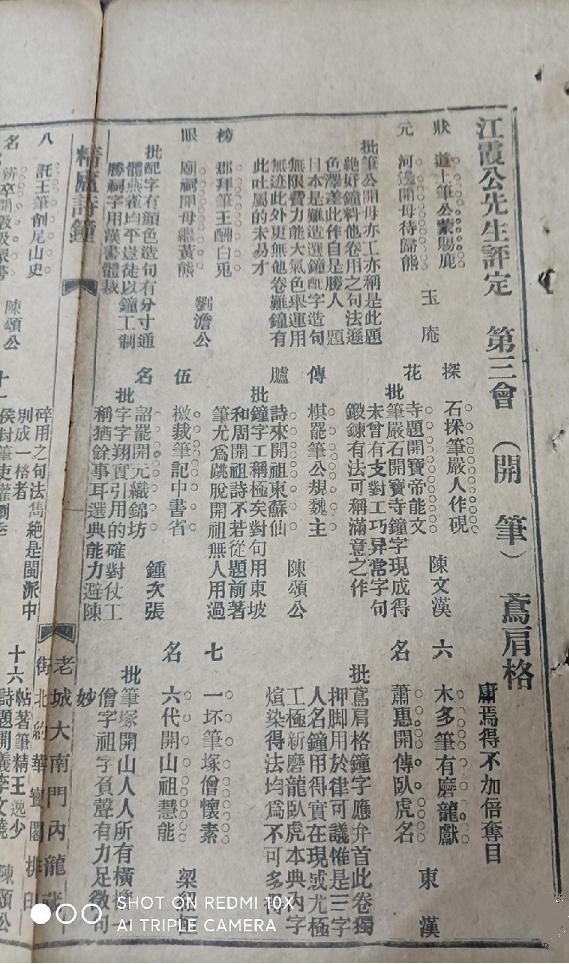 江霞公先生評定　第三會　（開　筆）　鳶肩格
狀元
道士筆公蒙賜鹿
河邊開母待歸熊
玉庵
批筆公開母亦工亦稱是此題
絕好鐘料他卷用之句法遜
色澤差此作自是勝人　題
日本是難造選鐘配字造句
無限費力能大氣色舉運用
無迹此外更無他卷難鐘有
此吐屬的未易才
榜眼
郡拜筆王酬白兎
廟祠開母繼黃熊
劉澹公
批配字有顏色造句有分寸通
體燕雀均平豈徒以鐘工制
勝祠字用漢書體裁
探花
石採筆嚴人作硯
寺題開寶帝能文
陳文漢
批筆嚴石開寶寺鐘字現成得
未曾有支對工巧異常字句
鍛鍊有法可稱滿意之作
傳臚
棋罷筆公規魏主
詩來開祖東蘇仙
陳頌公
批鐘字工稱極矣對句用東坡
和周開祖詩不若從題前著
筆尤爲跳脫開祖無人用過
伍名
檄裁筆記中書省
詔罷開元織錦坊
鍾次張
批字字翔實引用的確對仗工
稱猶餘事耳選典能力避陳
庸焉得不加倍奪目
六名
木多筆有磨龍獻
蕭惠開傳臥虎名
東漢
批鳶肩格鐘字應弁首此卷獨
押脚用於律可議惟是三字
人名鐘用得實在現或尤極
工極新磨龍臥虎本典內字
煊染得法均爲不可多得
七名
一坏筆塚僧懷素
六代開山祖慧能
梁紹恒
批筆塚開山人人所有橫插一
僧字祖字實聲有力足徵句
妙
精廬詩鐘
老城大南門內龍藏
街北約華寶閣排印
八名
託王筆創尼山史
陳頌公
十一
碎用之句法雋絕是閩派中
別成一格者
十六
帖著筆精王逸少
詩題開義李文饒
陳頌公
SHOT ON REDMI 10X
AI TRIPLE CAMERA